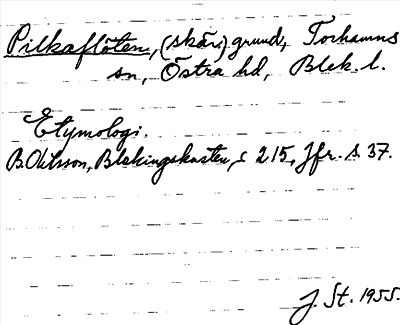 Pilkaflöten, (skär,) grund, Torhamns
sn, Östra hd, Blek. l.
Etymologi.
B. Ohlsson, Blekingskusten, s 215, Jfr. s. 37.
J. St. 1955.